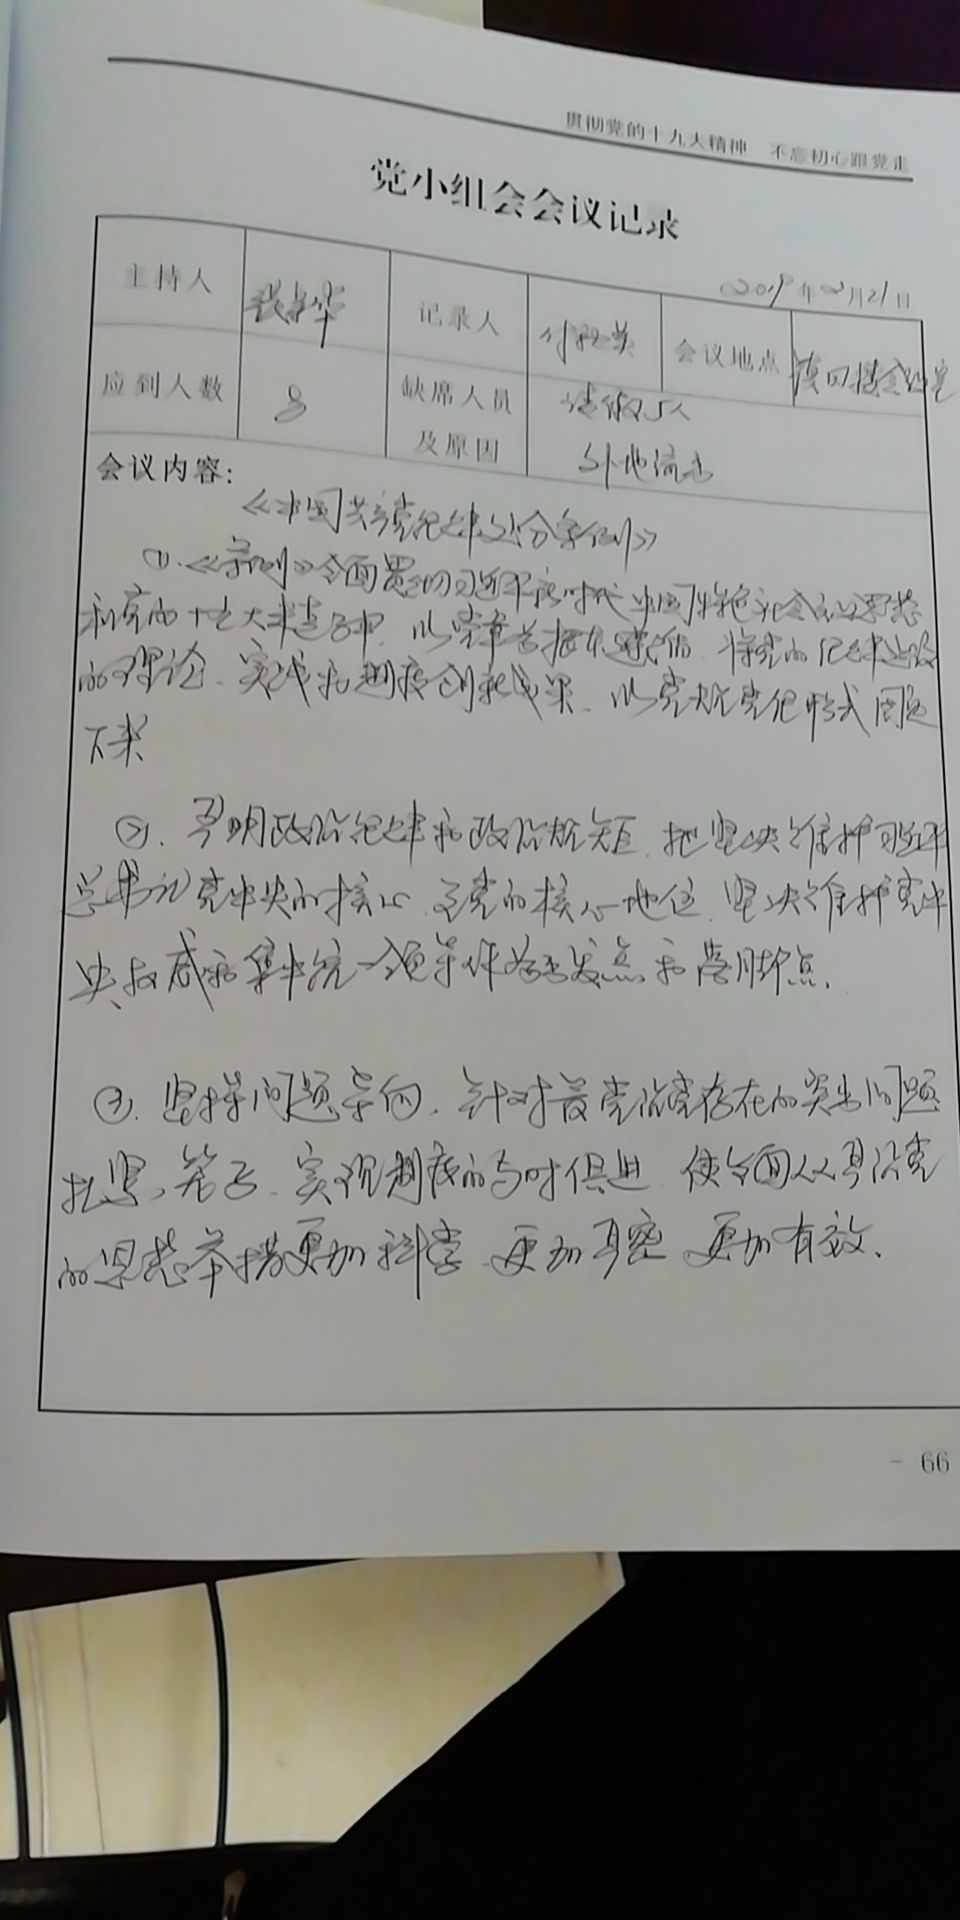 贯彻党的十九大精神 不忘初心跟党走
党小组会会议记录
2019年2月21日
主持人 华 记录人 付 会议地点 镇四楼会议室
应到人数 8 缺席人员及原因 请假5人
外地流出
会议内容:
《中国共产党纪律处分条例》
①.《条例》全面贯彻习近平新时代中国特色社会主义思想
和党的十九大精神,以党章为根本遵循,将党的纪律建设
的理论、实践和制度创新成果、以党规党纪形式固定
下来
②、严明政治纪律和政治规矩、把坚决维护习近平
总书记党中央的核心、全党的核心地位、坚决维护党中
央权威和集中统一领导作为出发点和落脚点.
③、坚持问题导向、针对管党治党存在的突出问题
扎紧笼子、实现制度的与时俱进、使全面从严治党
的思想举措更加科学、更加严密、更加有效、
- 66